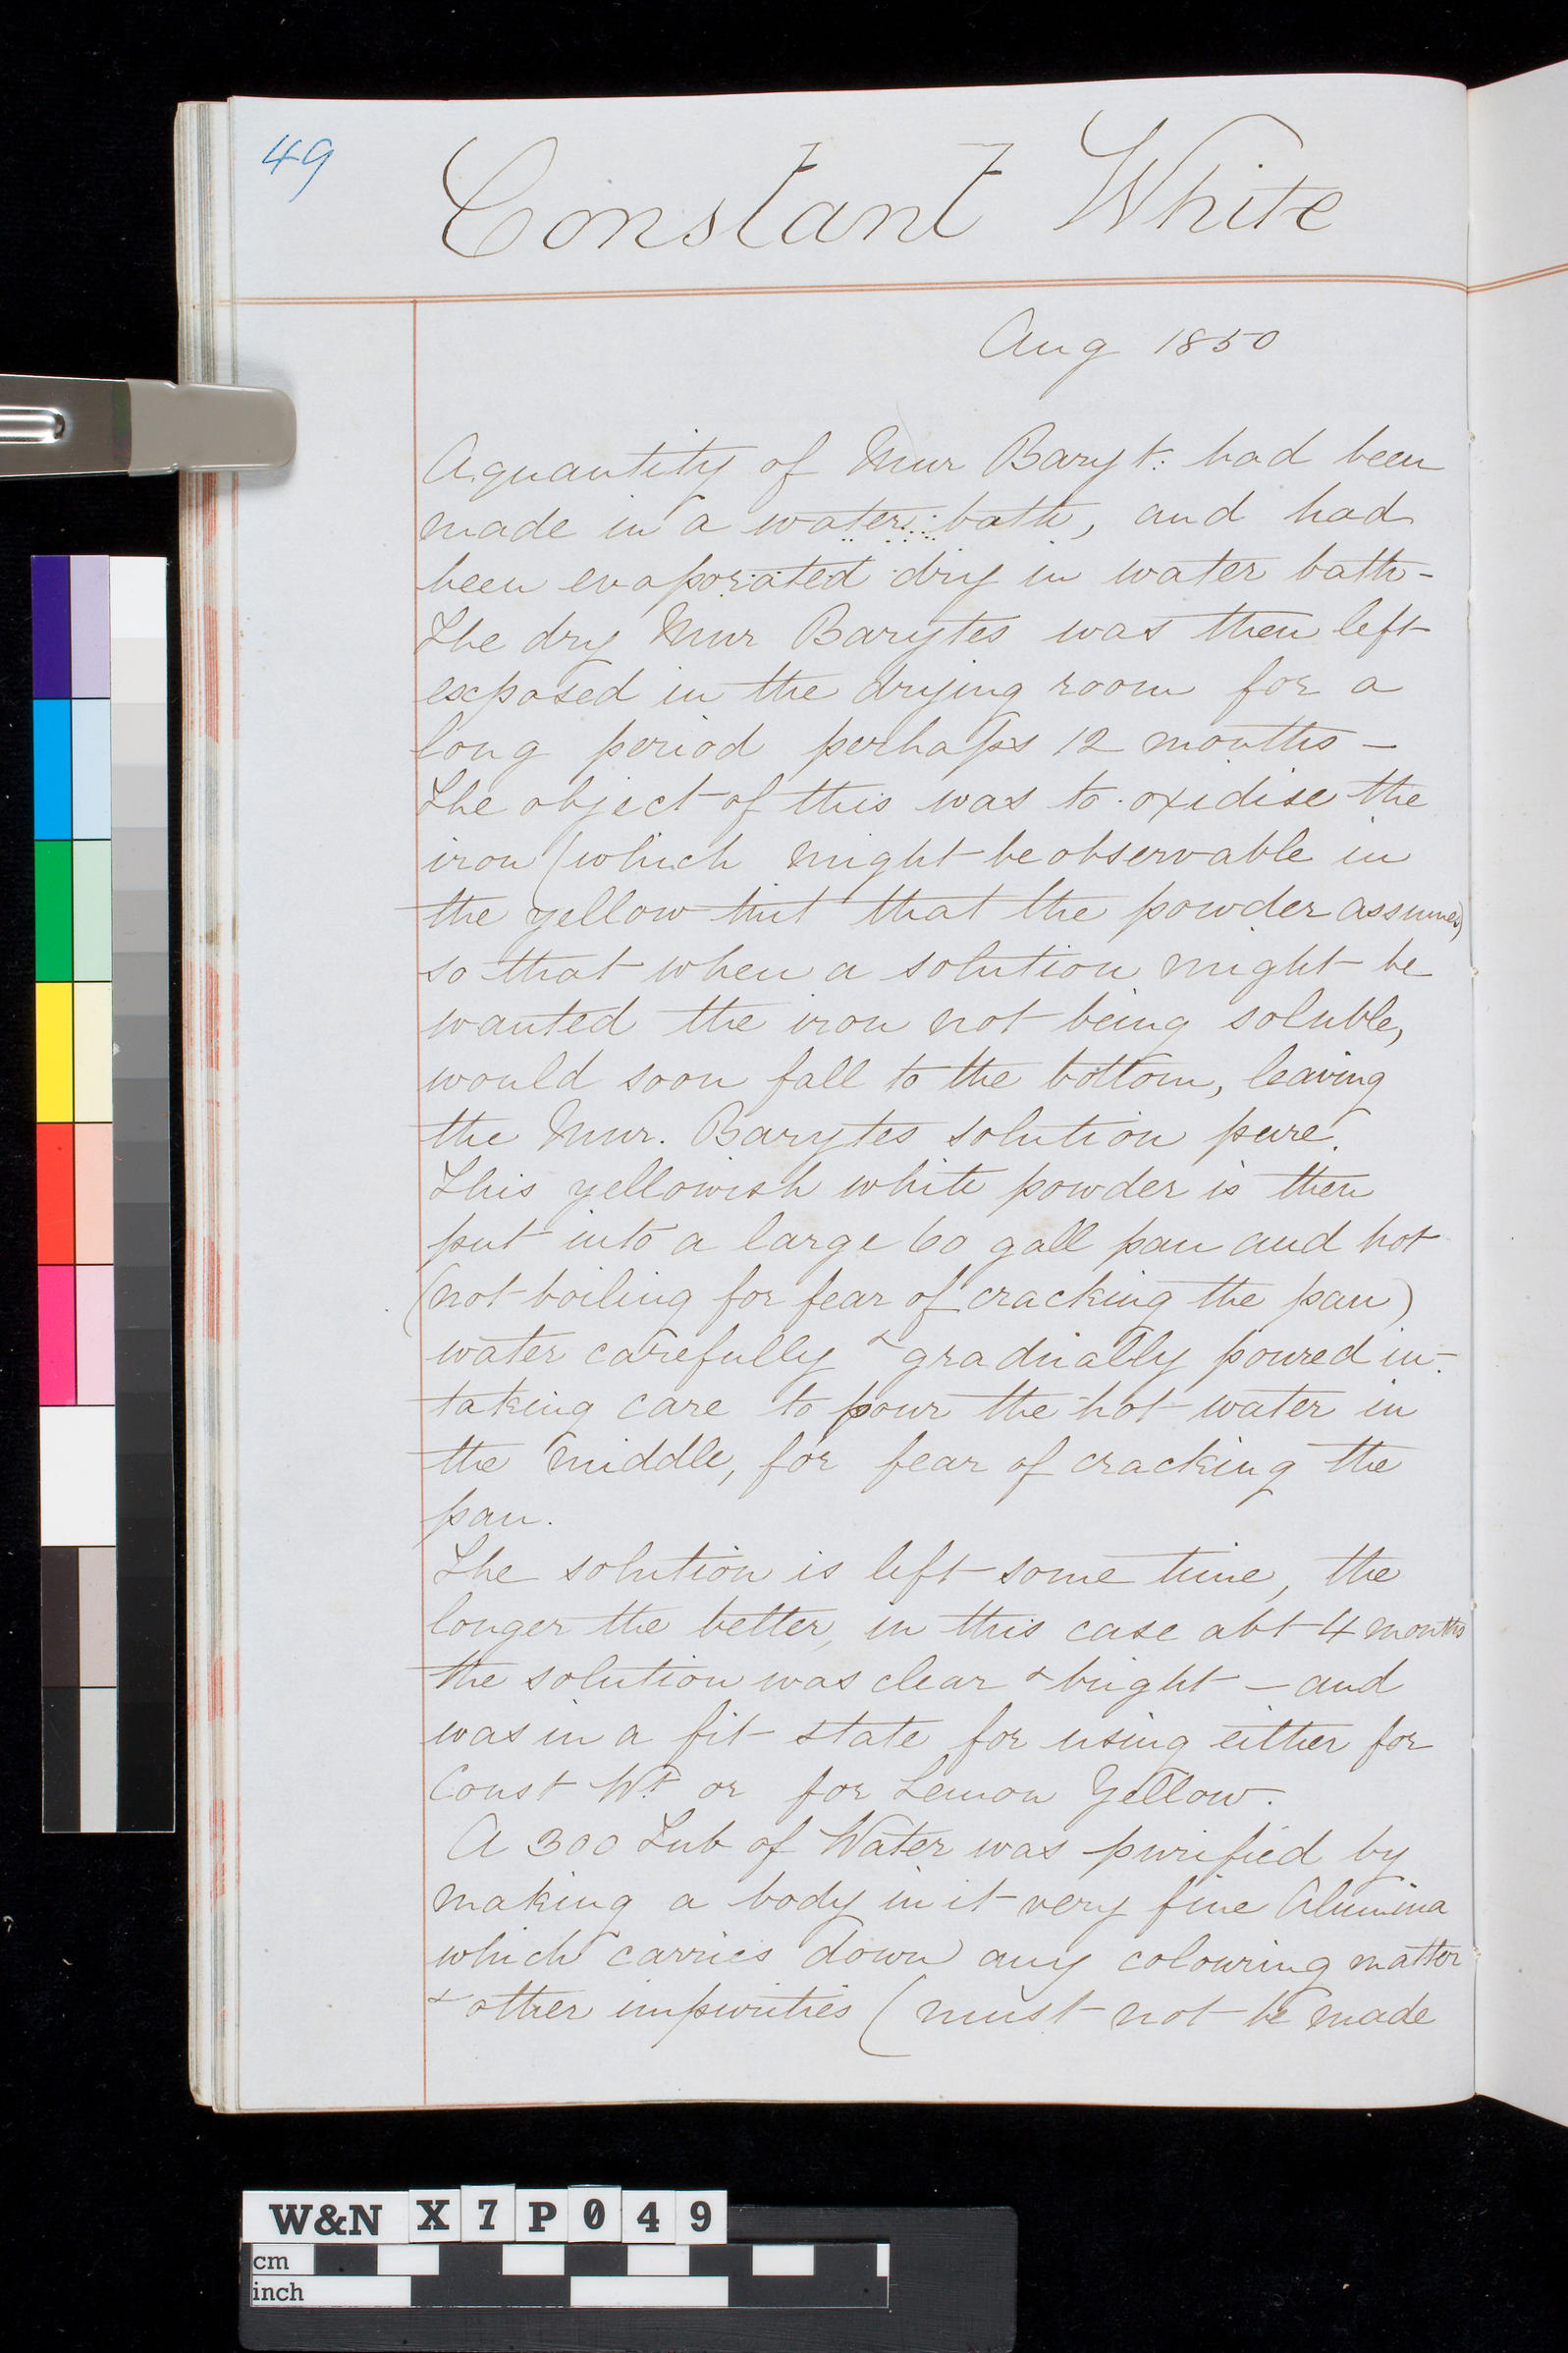 49
Constant White
Aug 1850
A quantity of Mur Baryt: had been
made in a water bath, and had
been evaporated dry in water bath -
The dry Mur Barytes was then left
exposed in the drying room for a
long period perhaps 12 months -
The object of this was to oxidise the
iron (which might be observable in
the yellow tint that the powder assumes)
so that when a solution might be
wanted the iron not being soluble,
would soon fall to the bottom, leaving
the Mur. Barytes solution pure.
This yellowish white powder is then
put into a large 60 gall pan and hot
(not boiling for fear of cracking the pan)
water carefully & gradually poured in -
taking care to pour the hot water in
the middle, for fear of cracking the
pan.
The solution is left some time, the
longer the better, in this case abt 4 months
the solution was clear & bright - and
was in a fit state for using either for
Const Wt. or for Lemon Yellow.
A 300 Tub of Water was purified by
making a body in it very fine Alumina
which carries down any colouring matter
& other impurities (must not be made
W&N X 7 P 0 4 9
cm
inch